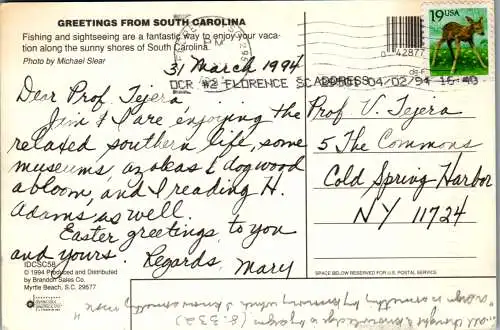 GREETINGS FROM SOUTH CAROLINA
Fishing and sightseeing are a fantastic way to enjoy your vaca-
tion along the sunny shores of South Carolina.
Photo by Michael Slear
31 March 1994
Dear Prof. Tejera
Jim & I are enjoying the
relaxed southern life, some
museums, azaleas & dogwood
abloom, and I reading H.
Adams as well.
Easter greetings to you
and yours. Regards,
Mary
IDCSC58
© 1994 Produced and Distributed
by Brandon Sales Co.
Myrtle Beach, S.C. 29577
19 USA
0 42877
PM
OCR #2 FLORENCE SC 04/02/94 16:40
ADDRESS
Prof V. Tejera
5 The Commons
Cold Spring Harbor
NY 11724
SPACE BELOW RESERVED FOR U.S. POSTAL SERVICE
(8.332)